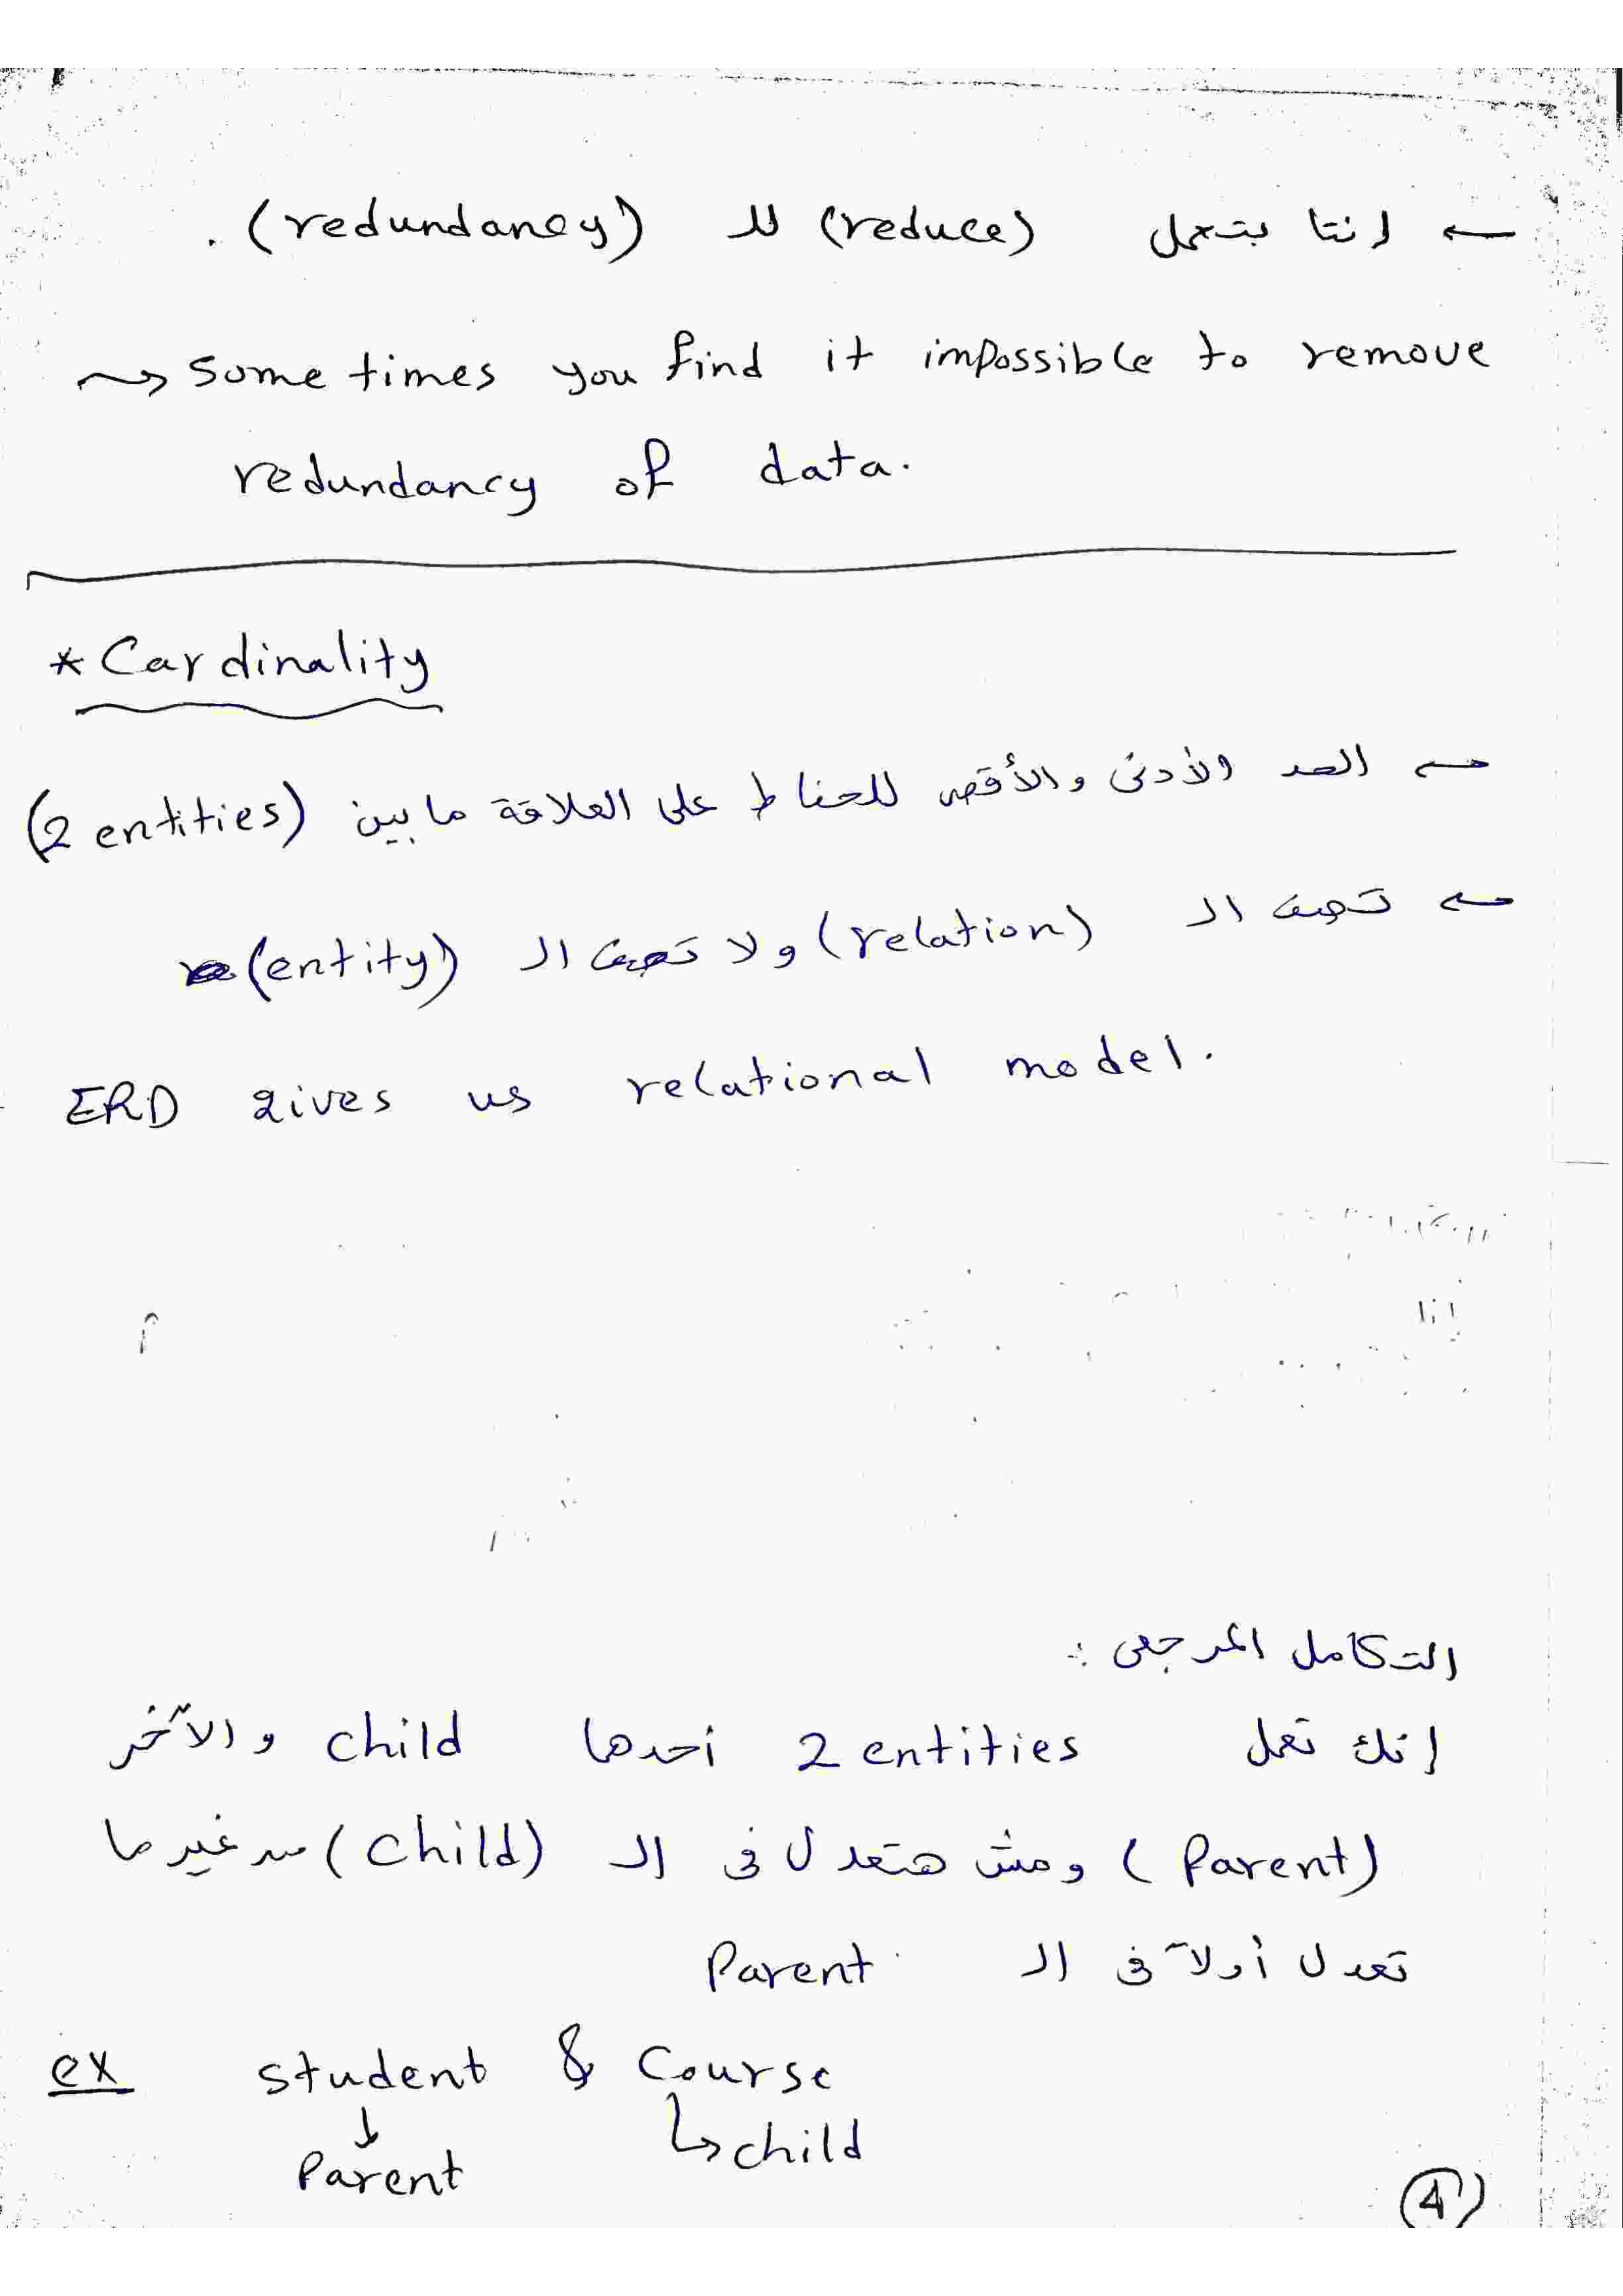 ← إنتا بتعمل (reduce) للـ (redundancy) .
→ Some times you find it impossible to remove
redundancy of data.
* Cardinality
← الحد الأدنى والأقصى للحفاظ على العلاقة ما بين (2 entities)
← تصف الـ (relation) ولا تصف الـ (entity)
ERD gives us relational model.
التكامل المرجعى :
إنك تعمل 2 entities أحدها child والآخر
(Parent) ومش هتعدل فى الـ (child) من غير ما
تعدل أولاً فى الـ Parent
ex student & Course
↓ Parent ↳ child
4